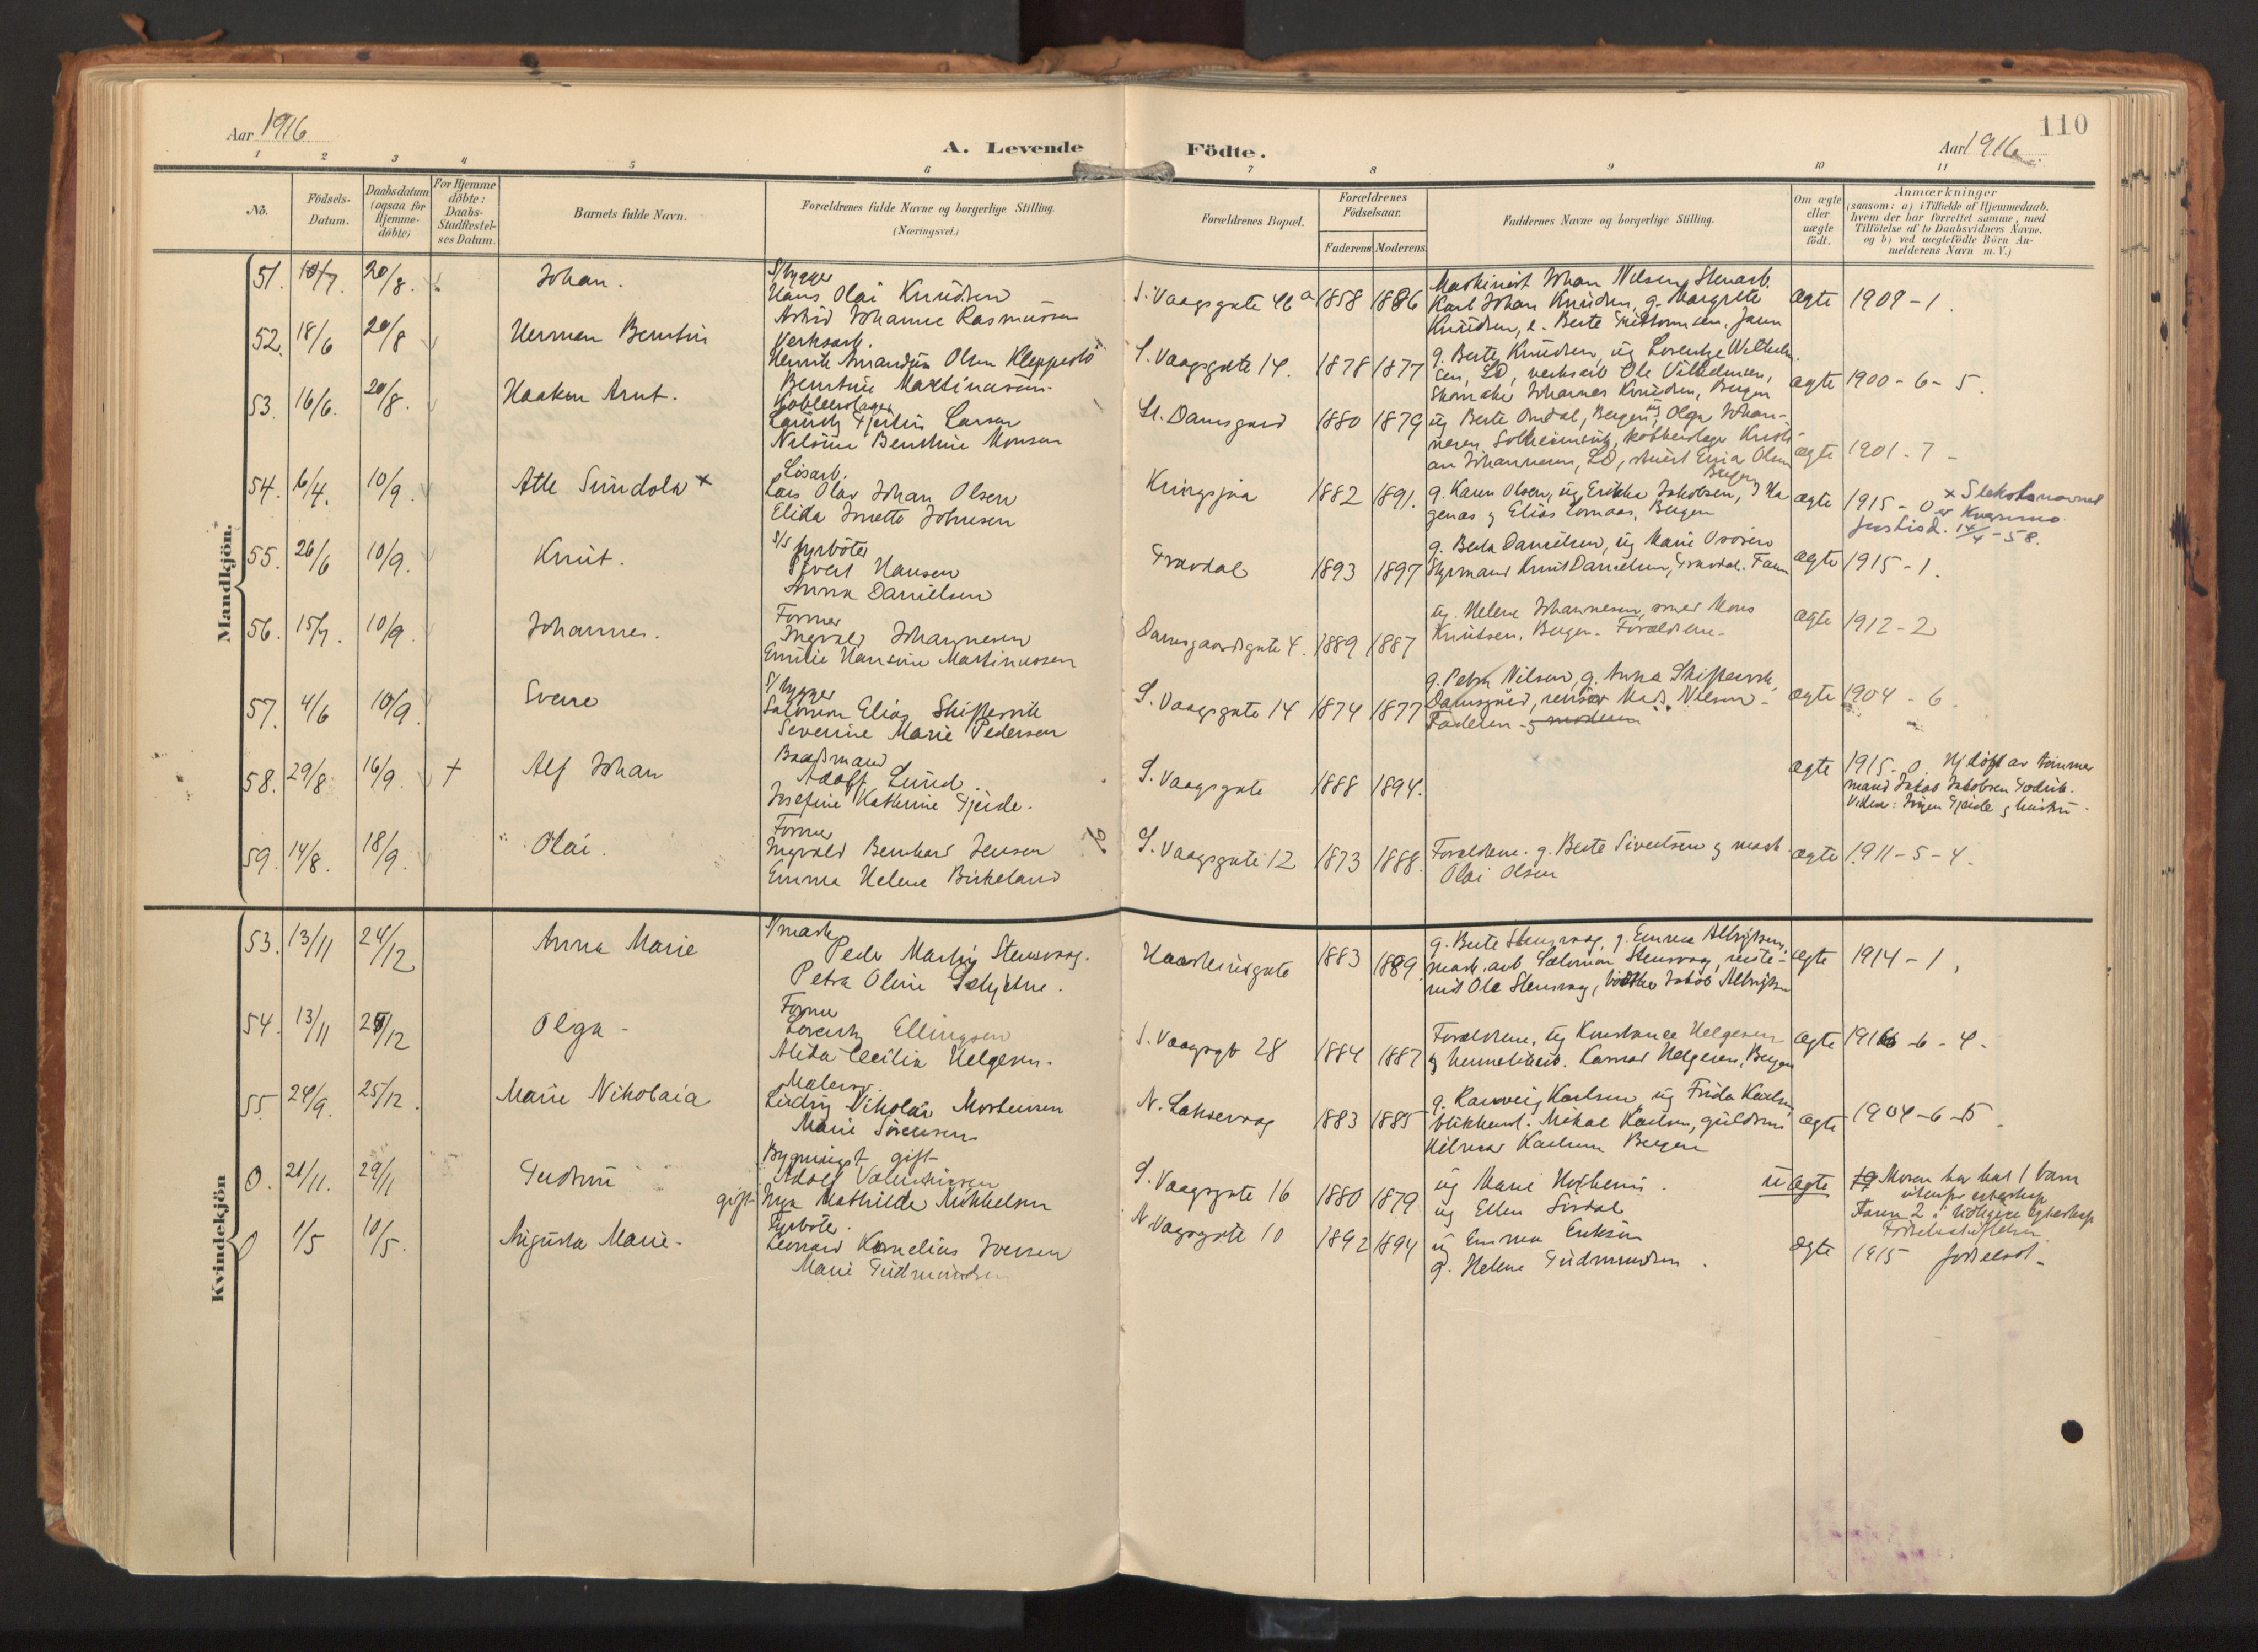 Aar 1916
A. Levende Födte.
110
Aar 1916
1 2 3 4 5 6 7 8 9 10 11
No.
Födsels-
Datum.
Daabsdatum
(ogsaa for
Hjemme-
döbte)
For Hjemme
döbte:
Daabs-
Stadfæstel-
ses Datum.
Barnets fulde Navn.
Forældrenes fulde Navne og borgerlige Stilling.
(Næringsvei.)
Forældrenes Bopæl.
Forældrenes
Födselsaar.
Faderens Moderens
Faddernes Navne og borgerlige Stilling.
Om ægte
eller
uægte
födt.
Anmærkninger
(saasom: a) i Tilfælde af Hjemmedaab,
hvem der har forrettet samme, med
Tilföielse af to Daabsvidners Navne,
og b) ved uægtefödte Börn An-
melderens Navn m. V.)
Mandkjön.
51. 10/7. 20/8. Johan.
S/bygger
Hans Olai Knudsen
Astrid Johanne Rasmussen
S. Vaagsgate 46a 1858 1886
Maskinist Johan Nilsen, Stenarb.
Karl Johan Knudsen, g. Margrete
Knudsen, e. Berte
ægte 1909-1.
52. 18/6 20/8 Herman Berntin
Verksarb.
Henrik Amandus Olsen Kleppestö
Berntine Martinussen
S. Vaagsgate 14. 1878 1877
g. Berte Knudsen, ug Lorentze Wilhelm
sen, LO, verksarb Ole Vilhelmsen,
Skomaker Johannes Knudsen, Bergen
ægte 1900-6-5.
53. 16/6. 20/8. Haakon Arnt.
Kobberslager
Lauritz Larsen
Nalvine Berntine Monsen
St. Damsgard 1880 1879
ug Berte Omdal, Bergen, ug Olga Johan-
nesen, Solheimsvik, kobberslager Kristi
an Johannesen, LO, Enia Olsen
Bergen
ægte 1901-7-
54. 6/4. 10/9. Atle Sundola x
Lösarb.
Lars Olav Johan Olsen
Elida Jonette Johnsen
Kringsjaa 1882 1891.
g. Karen Olsen, ug Erikka Jakobsen, J Ha
genæs g Elias Lornaas, Bergen
ægte 1915-0
x Slektsnavnet
er Kvammo.
Justisd. 14/4-58.
55. 26/6 10/9. Knut.
S/S fyrböter
Sivert Hansen
Anna Danielsen
Gravdal 1893 1897
g. Berta Danielsen, ug Marie
Styrmand Knut Danielsen, Gravdal. Faren
ægte 1915-1.
56. 15/7. 10/9. Johannes.
Former
Ingvald Johannesen
Emilie Hansine Martinussen
Damsgaardsgate 4. 1889 1887
ug. Helene Johannesen, Mons
Knutsen, Bergen. Forældrene-
ægte 1912-2
57. 4/6 10/9 Sverre
S/bygger
Salomon Elias Skiftesvik
Severine Marie Pedersen
S. Vaagsgate 14 1874 1877
g. Petra Nilsen, g. Anna Skiftesvik,
Damsgard, Mads Nilsen -
Faderen g moderen
ægte 1904-6.
58. 29/8 16/9. + Alf Johan
Baadsmand
Adolf Lund
Josefine Katherine Gjeide.
S. Vaagsgate 1888 1894.
ægte 1915-0 Hjdöpt av tömmer
mand Jakob Jakobsen
Vidner: Gjeide g hustru
59. 14/8. 18/9. Olai.
Former
Ingvald Bernhard Jensen
Emma Helene Birkeland
S. Vaagsgate 12 1873 1888.
Forældrene. g. Berte Sivertsen g mask
Olai Olsen
ægte 1911-5-4.
Kvindekjön
53. 13/11 24/12 Anna Marie
S/mask
Peder Martin Stensvaag.
Petra Oline
Haakeinsgate 1883 1889
g. Berte Stensvaag, g. Emma Albrigtsen,
mask. arb Salomon Stensvaag,
Ole Stensvaag, bödker Jakob Albrigtsen
ægte 1914-1,
54. 13/11 25/12 Olga -
Former
Lorentz Ellingsen
Alida Cecilia Helgesen.
S. Vaagsgt 28 1884 1887
Forældrene, ug Konstance Helgesen
g Karsnas Helgesen, Bergen
ægte 1916-6-4.
55. 24/9. 25/12. Marie Nikolaia
Malersv.
Ludvig Nikolai Mortensen
Marie Sörensen
N. Laksevaag 1883 1885
g. Ranveig Karlsen, ug Frida Karlsen
blikkensl. Mikal Karlsen, guldsm
Hilmar Karlsen Bergen
ægte 1904-6-5.
0. 21/11. 29/11 Gudrun
Bygningst gift
Adolf
gift Inga Mathilde Mikkelsen
S. Vaagsgate 16 1880 1879
ug Marie Hofheim.
ug Ellen Sirdal
uægte Moren har hat 1 barn
utenfor egteskap
Faren 2 i tidligere egteskap
Födselsstiftelsen
0 1/5 10/5. Augusta Marie.
Fyrböter.
Leonard Kornelius Iversen
Marie Gudmundsen
N. Vagsgate 10 1892 1894
ug Emma Eriksen
g. Helene Gudmundsen.
ægte 1915 födselsst.